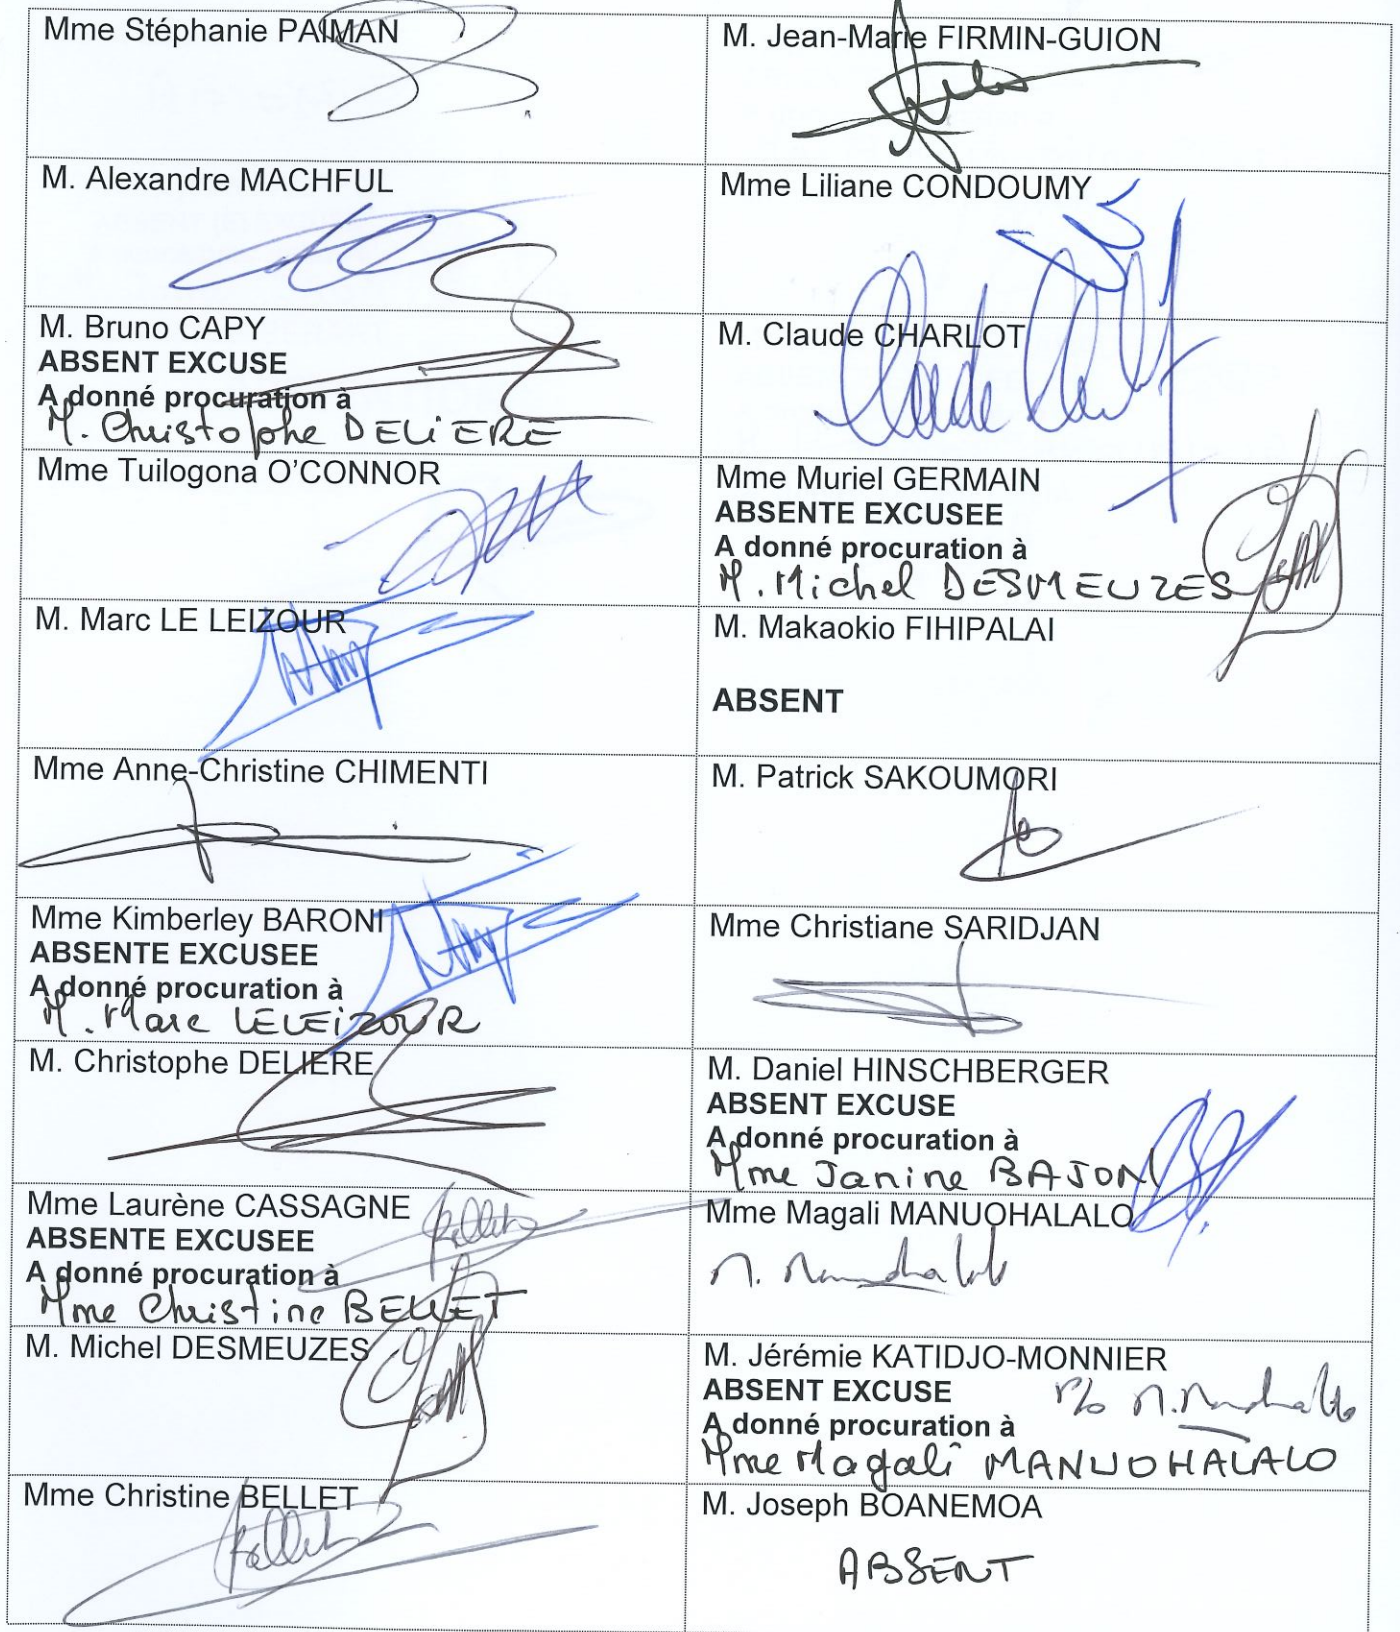 Mme Stéphanie PAIMAN
M. Jean-Marie FIRMIN-GUION
M. Alexandre MACHFUL
Mme Liliane CONDOUMY
M. Bruno CAPY
ABSENT EXCUSE
A donné procuration à
M. Christophe DELIERE
M. Claude CHARLOT
Claude
Mme Tuilogona O'CONNOR
Mme Muriel GERMAIN
ABSENTE EXCUSEE
A donné procuration à
M. Michel DESMEUZES
M. Marc LE LEIZOUR
M. Makaokio FIHIPALAI
ABSENT
Mme Anne-Christine CHIMENTI
M. Patrick SAKOUMORI
Mme Kimberley BARONI
ABSENTE EXCUSEE
A donné procuration à
M. Marc LELEIZOUR
Mme Christiane SARIDJAN
M. Christophe DELIERE
M. Daniel HINSCHBERGER
ABSENT EXCUSE
A donné procuration à
Mme Janine BAJON
Mme Laurène CASSAGNE
ABSENTE EXCUSEE
A donné procuration à
Mme Christine BELLET
Mme Magali MANUOHALALO
M. Michel DESMEUZES
M. Jérémie KATIDJO-MONNIER
ABSENT EXCUSE
A donné procuration à
Mme Magali MANUOHALALO
Mme Christine BELLET
M. Joseph BOANEMOA
ABSENT